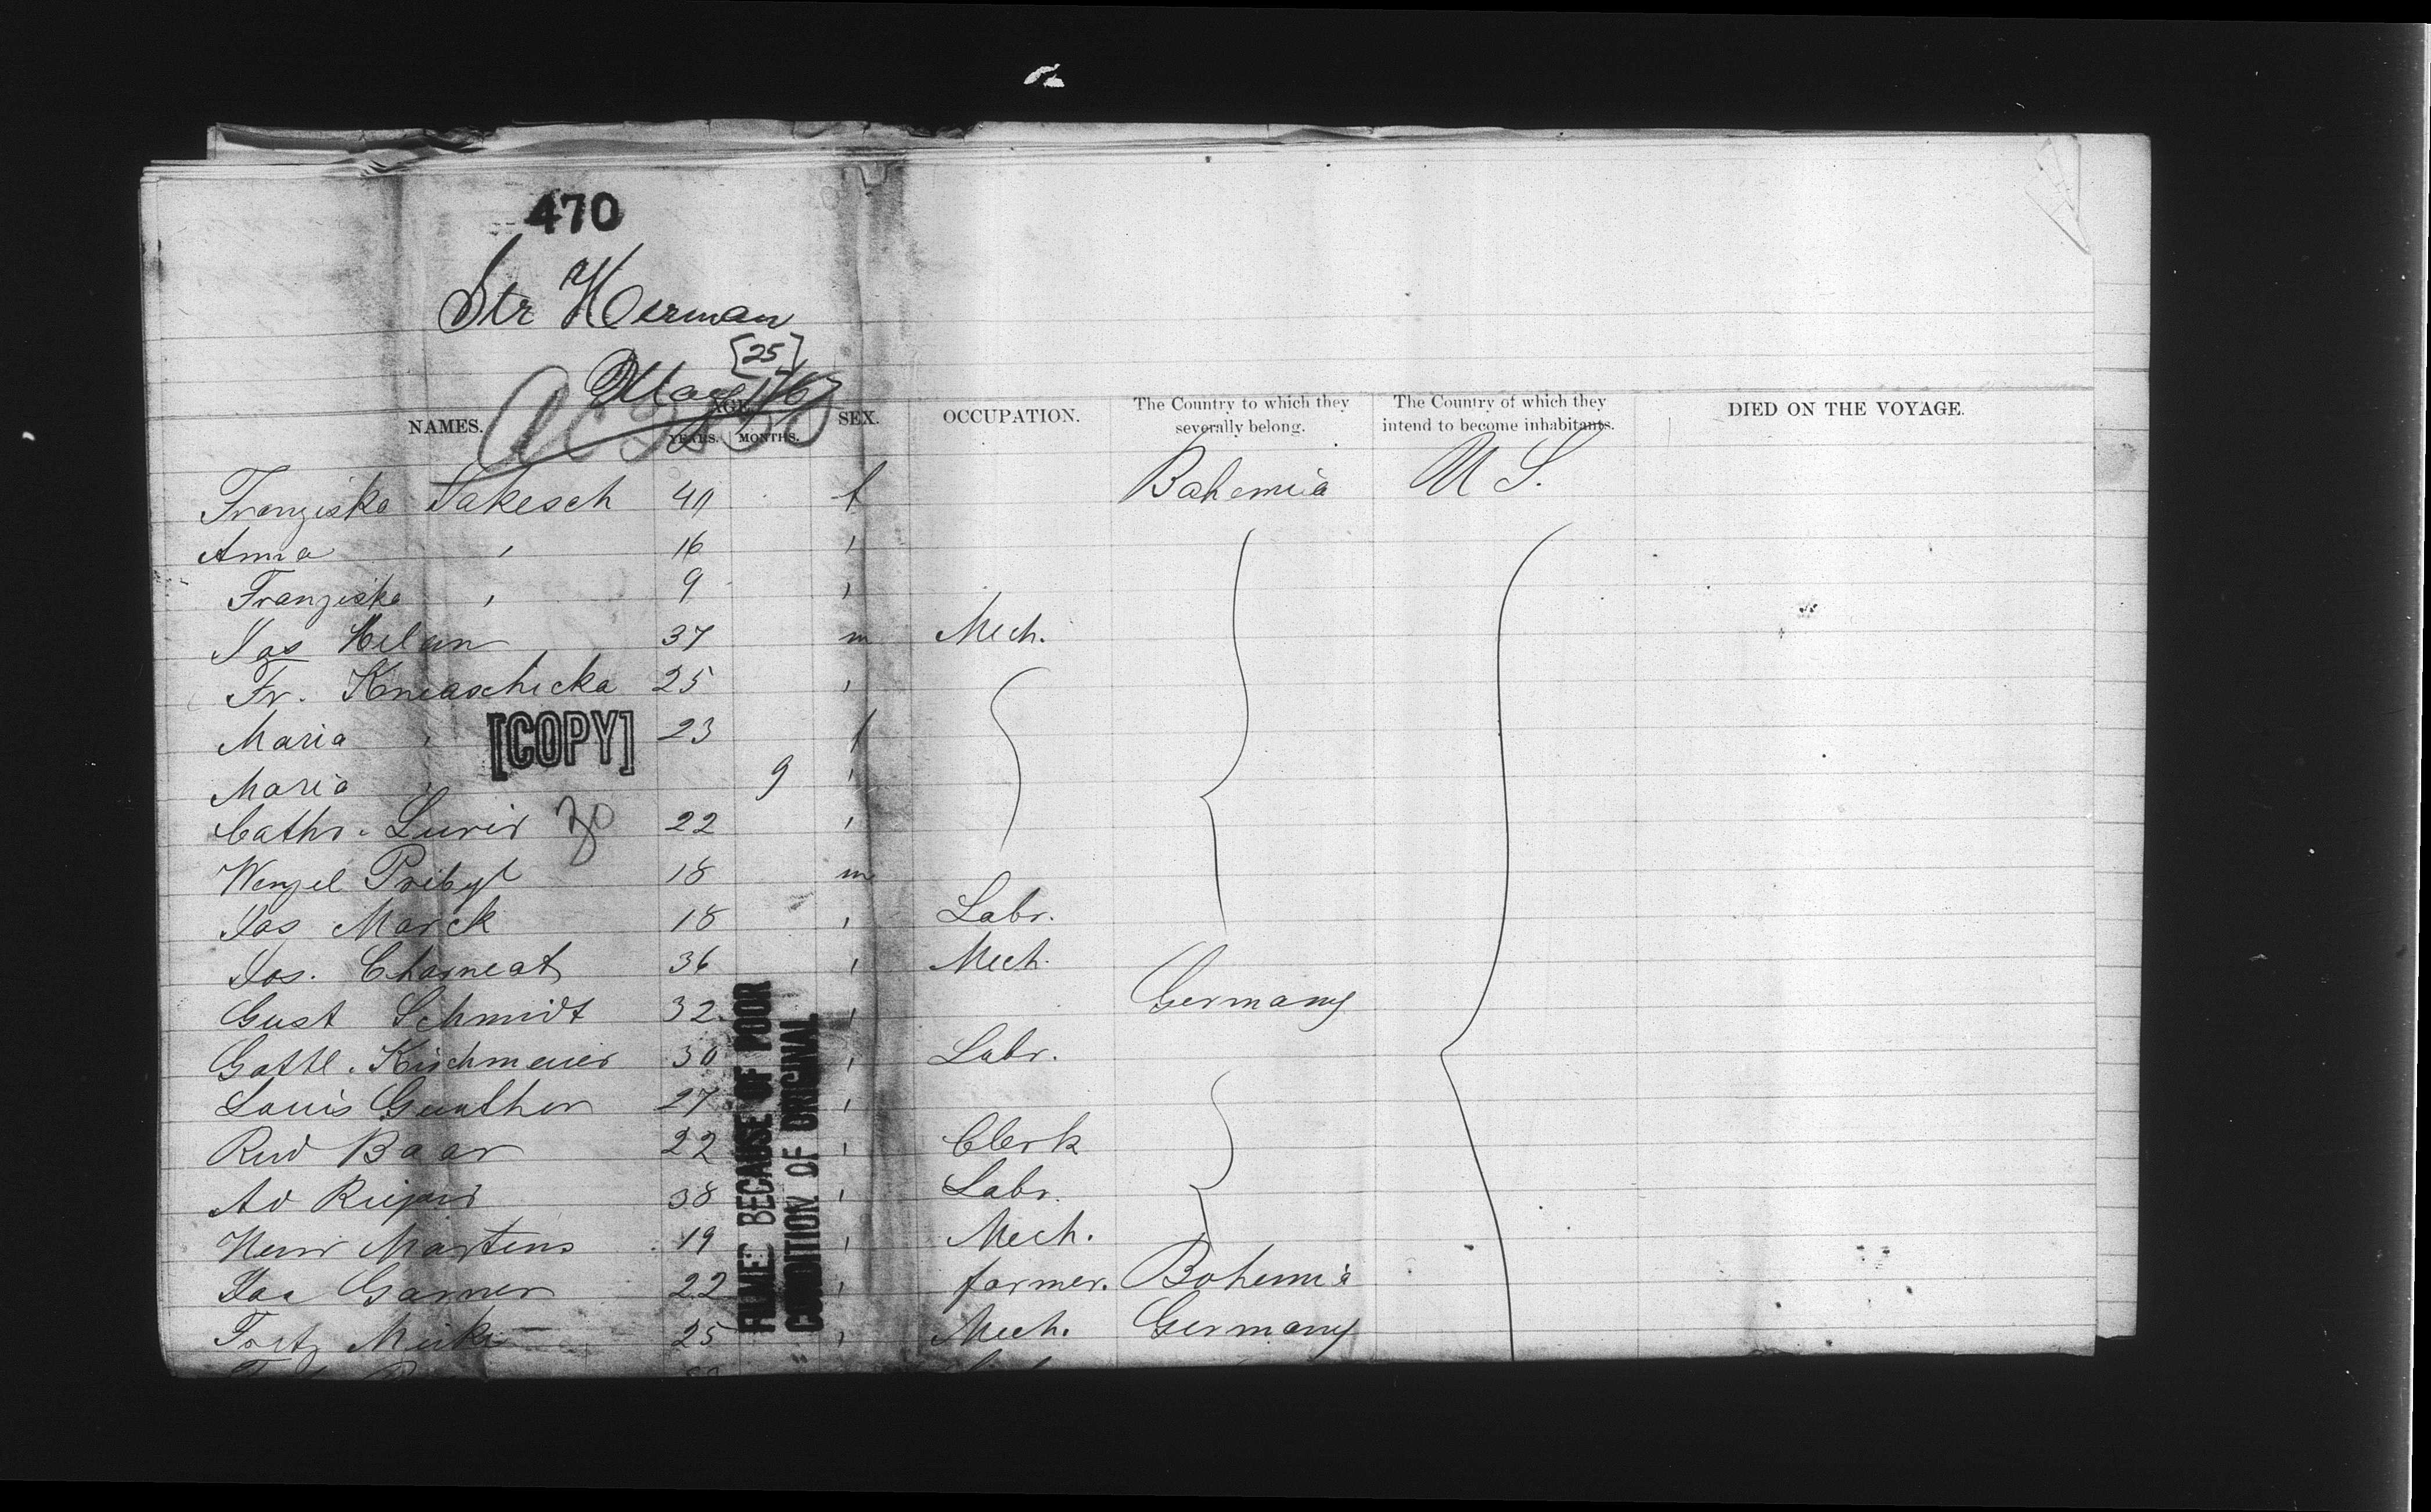 470
Str Herman
[25]
May
NAMES. AGE. YEARS. MONTHS. SEX. OCCUPATION. The Country to which they severally belong. The Country of which they intend to become inhabitants. DIED ON THE VOYAGE.
Franziska Jakesch 40 f Bohemia U S.
Anna " 16 "
Franziska " 9 "
Jos 37 m Mech.
Fr. Kneaschicka 25 "
Maria " 23 f
[COPY]
Maria " 9 "
Cathr. 22 "
30
Wenzel Pribyl 18 m
Jos Marck 18 " Labr.
Jos. Charneat 36 " Mech.
Gust Schmidt 32 " Germany
Gottl. Kirchmeier 30 " Labr.
Louis Gunther 27 "
Rud Baar 22 " Clerk
Ad 38 " Labr.
Henr Martens 19 " Mech.
Garner 22 " farmer. Bohemia
Fritz 25 " Mech. Germany
FILMED BECAUSE OF POOR
CONDITION OF ORIGINAL